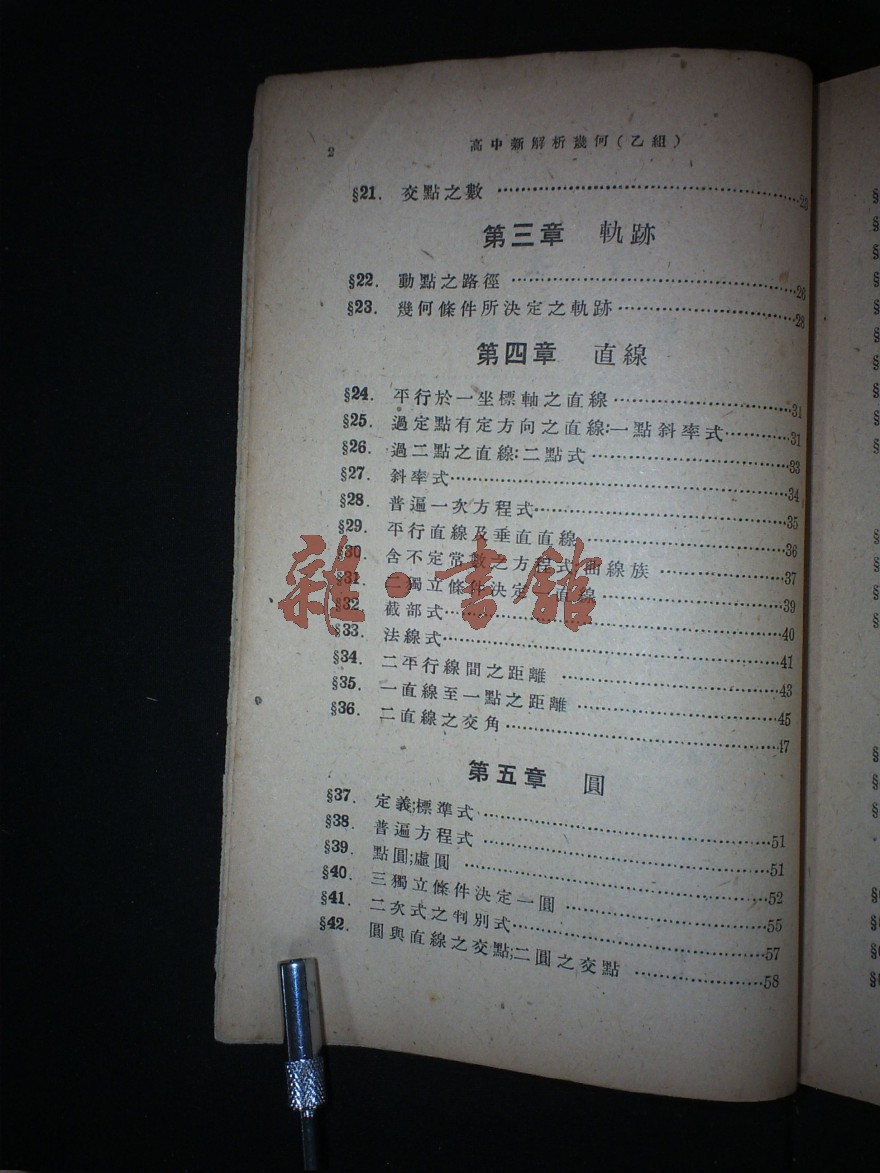 2 高中新解析幾何(乙組)
§21. 交點之數 ……23
第三章 軌跡
§22. 動點之路徑 ……26
§23. 幾何條件所決定之軌跡……28
第四章 直線
§24. 平行於一坐標軸之直線……31
§25. 過定點有定方向之直線:一點斜率式……31
§26. 過二點之直線:二點式……33
§27. 斜率式……34
§28. 普遍一次方程式……35
§29. 平行直線及垂直直線……36
§30. 含不定常數之方程式;曲線族……37
§31. 二獨立條件決定一直線……39
§32. 截部式……40
§33. 法線式……41
§34. 二平行線間之距離……43
§35. 一直線至一點之距離……45
§36. 二直線之交角……47
第五章 圓
§37. 定義;標準式……51
§38. 普遍方程式……51
§39. 點圓;虛圓……52
§40. 三獨立條件決定一圓……55
§41. 二次式之判別式……57
§42. 圓與直線之交點;二圓之交點……58
雜·書館